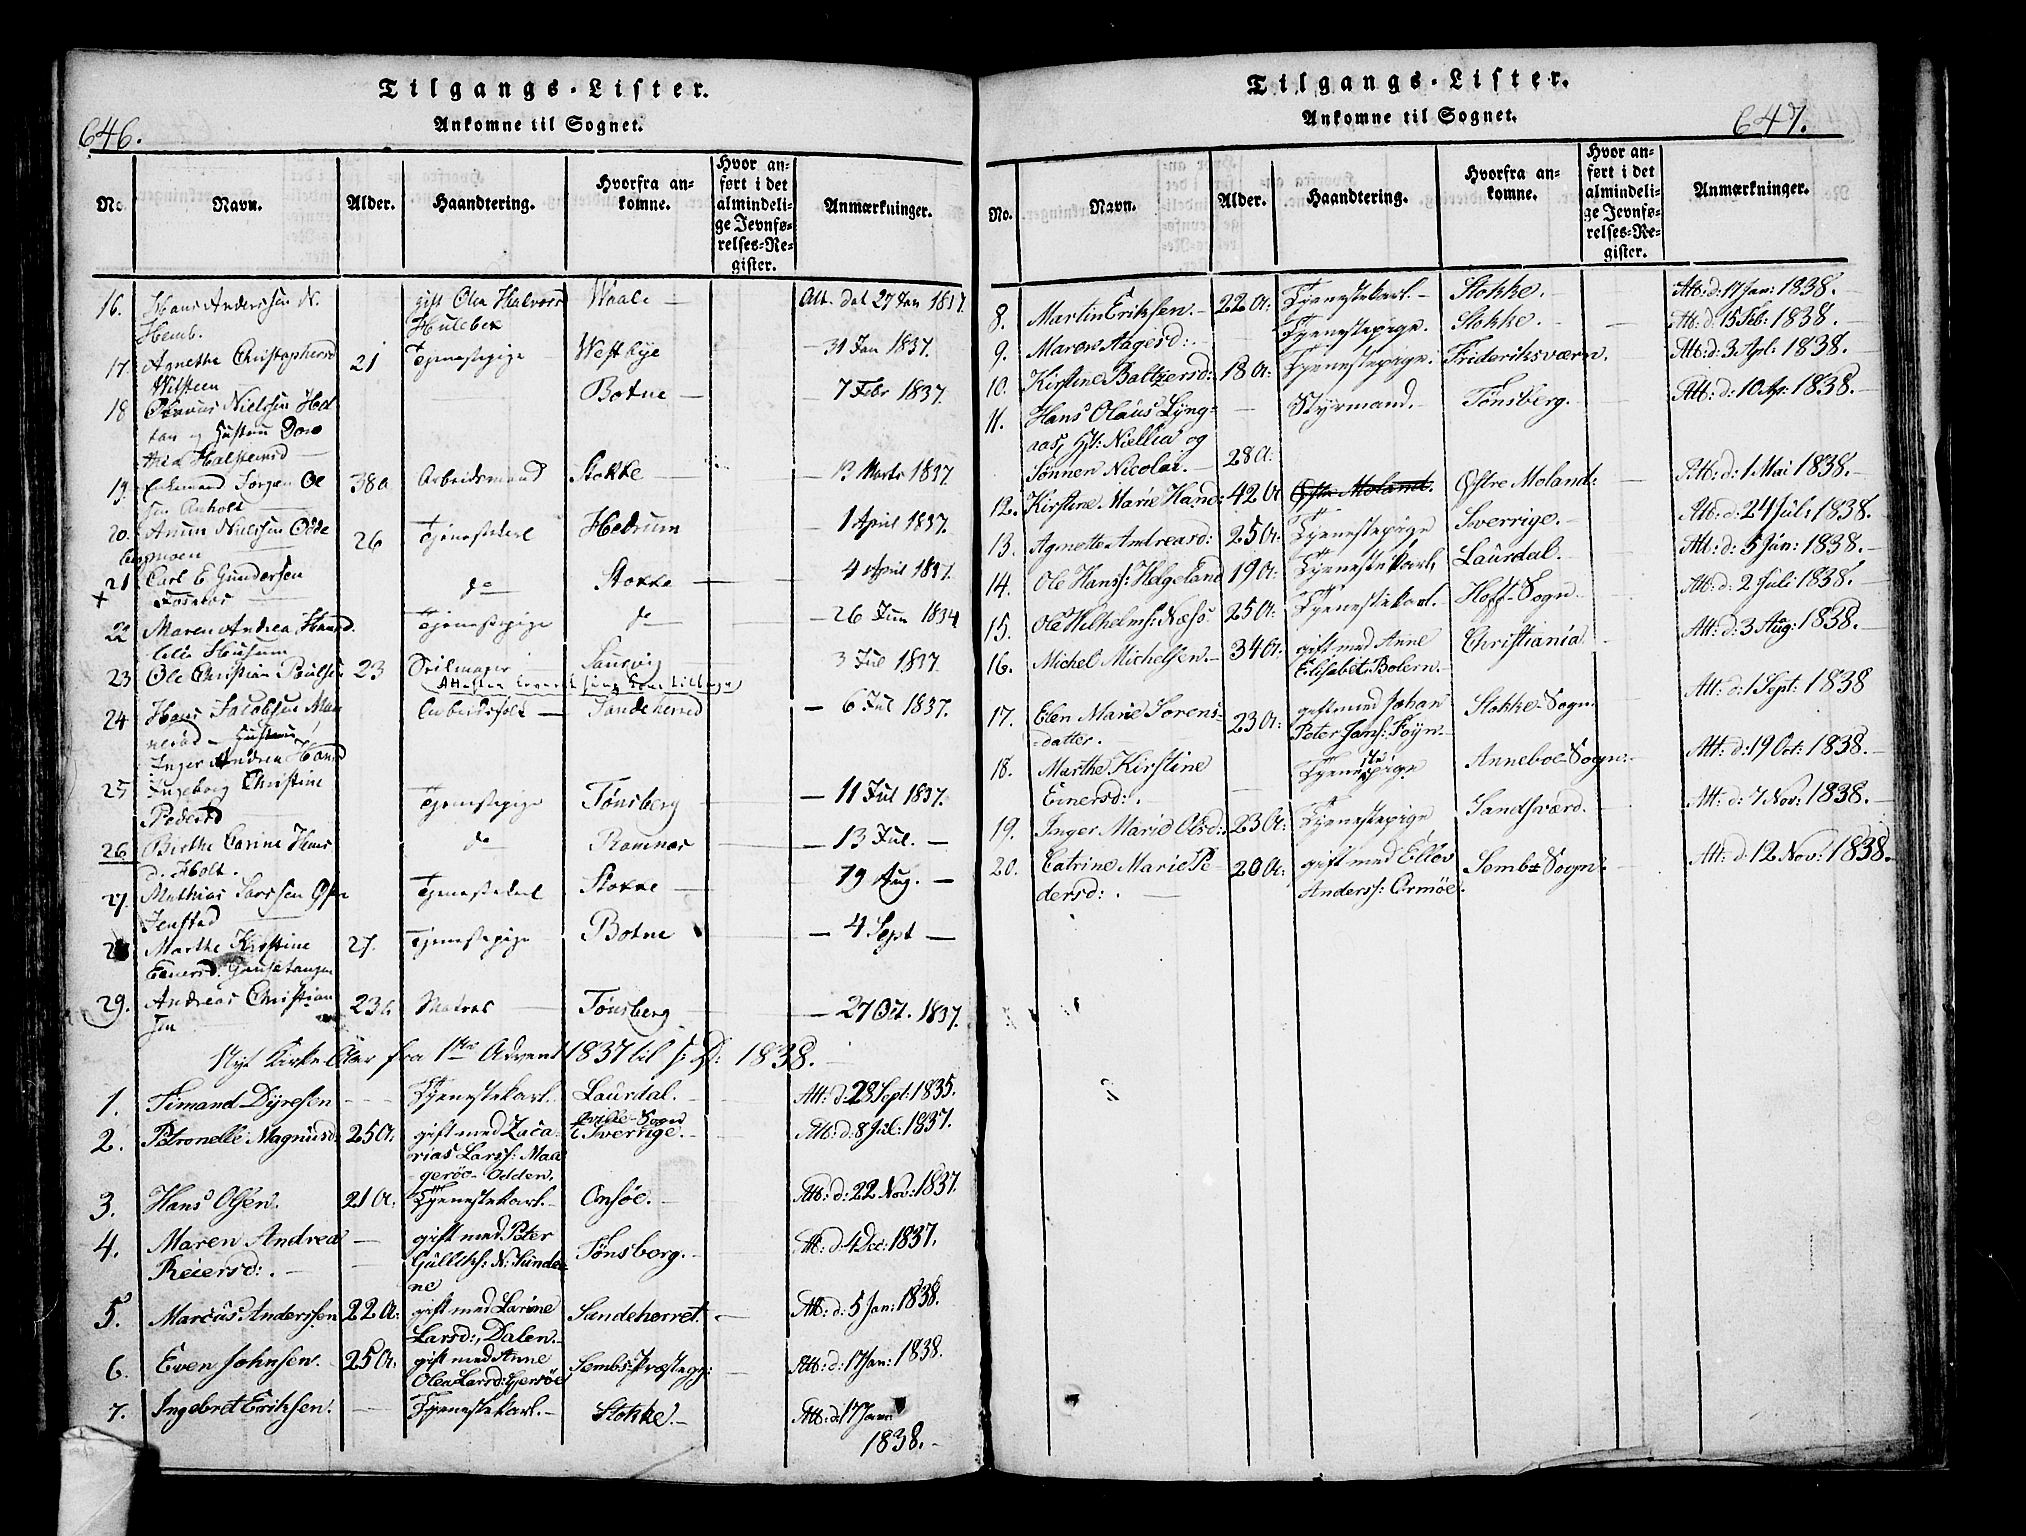 646.
Tilgangs-Lister.
Ankomne til Sognet.
No. Navn. Alder. Haandtering. Hvorfra ankomne. Hvor anført i det almindelige Jevnførelses-Register. Anmærkninger.
16. Hans Anderssen N. gift Olea Halvors Waale — Att. dat 27 Jan 1837.
Hemb. Hulebek
17 Agnethe Christophersd 21 Tjenestepige Westbye — 31 Jan 1837.
18 Nielssen Botne — 7 Febr 1837.
tan og Hustru Doro
thea Halsteinsd
19. Enkemand Jørgen Ol 38a Arbeidsmand Stokke — 13 Marts 1837
20. Nielssen 26 Tjenestekarl Hedrum — 1 April 1837.
21 Carl E. Gundersen do Stokke — 4 April 1837.
+ Fosnæs
22 Maren Andrea Hansd. Tjenestepige do — 26 Jun 1834
23 Ole Christian Poulsen 23 Seilmager Laurvig 3 Jul 1837.
24 Hans Jacobsen Arbeidsfolk — Sandeherred — 6 Jul 1837.
Hustru
Inger Andrea Hansd
25 Ingeborg Christine Tjenestepige Tønsberg — 11 Jul 1837.
Pedersd
26 Birthe Carine Hans do Ramnæs — 13 Jul. —
d. Holt.
27. Mathias Larssen Tjenestekarl Stokke — 19 Aug. —
28 Marthe Kirstine 27. Tjenestepige Botne — 4 Sept —
Einersd.
29. Andreas Christian 23 a Matros Tønsberg — 27 Oct. 1837.
sen
Nyt Kirke-Aar fra 1ste Advent 1837 til s: D: 1838.
1. Simand Dyresen — Tjenestekarl. Laurdal. Att: d. 28 Sept: 1835.
2. Petronelle Magnusd: 25 A. gift med Zaca- Sogn i Sverrige. — Att: d: 8 Jul: 1837.
rias Larss: Maa
gerøe-Odden.
3. Hans Olsen. 21 A: Tjenestekarl. Onsøe. — Att: d: 22 Nov: 1837.
4. Maren Andrea — gift med Peter Tønsberg. — Att: d. 4 Dec: 1837.
Reiersd: . — Gulliks: N: Sunde-
ne
5. Marcus Anderssen 22 A: gift med Larine Sandeherret. Att: d: 5 Jan: 1838.
Larsd:, Dalen.
6. Even Johnsen. 25 A: gift med Anne Sembs-Præstegj: Att: d: 17 Jan: 1838.
Olea Larsd:
7. Ingebret Eriksen. — Tjenestekarl. — Stokke. — Att: d: 17 Janu
1838. —
Tilgangs-Lister.
Ankomne til Sognet.
647.
No. Navn. Alder. Haandtering. Hvorfra ankomne. Hvor anført i det almindelige Jevnførelses-Register. Anmærkninger.
8. Martin Eriksen. — 22 A: Tjenestekarl. — Stokke. — Att: d: 17 Jan: 1838. —
9. Maren Aagesd: . Tjenestepige. Stokke. — Att: d. 15 Feb: 1838. —
10. Kirstine Baltzersd: 18 A: Tjenestepige. Frideriksværn. Att: d: 3 Apl: 1838. —
11. Hans Olaus Lyng- — Styrmand. — Tønsberg. Att: d: 10 Ap: 1838. —
aas, H: Niellia og
Sønnen Nicolai. — 28 A:
12. Kirstine Marie Hansd: 42 A Østre Moland. Østre Moland: Att: d: 1 Mai 1838. —
13. Agnette Andreasd: 25 A: Tjenestepige Sverrige. — Att: d. 24 Jul: 1838.
14. Ole Hanss: Helgeland 19 A: Tjenestekarl, Laurdal. Att: d: 5 Jan: 1838. —
15. Ole Wilhelms: Næsø 25 A: Tjenestekarl. Hoff-Sogn. Att: d: 2 Juli 1838. —
16. Michel Michelsen. — 34 A: gift med Anne Christiania. Att: d: 3 Aug: 1838. —
Elisabet Bolern. —
17. Elen Marie Sørens- 23 A: gift med Johan Stokke-Sogn. Att: d: 1 Sept: 1838
datter. Peter Jans: Føyn. —
18. Marthe Kirstine Tjenestepige Anneboe-Sogn: Att: d: 19 Oct: 1838. —
Einersd: . —
19. Inger Marie Olsd: 23 A: Tjenestepige Sandsværd. Att: d: 7 Nov: 1838. —
20. Catrine Marie Pe- 20 A: gift med Ellev Semb-Sogn: Att: d: 12 Nov: 1838.
dersd: . — Anderss: Ormøe.